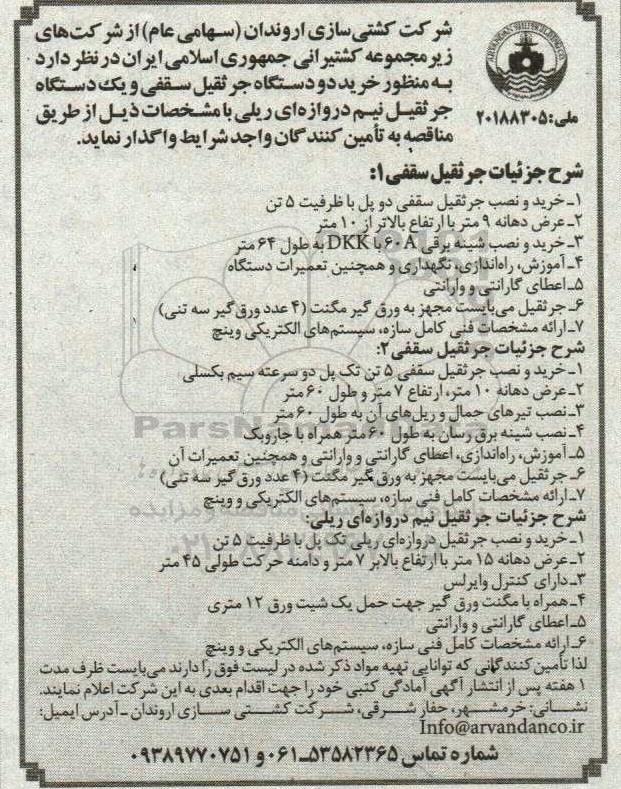 شرکت کشتی سازی اروندان (سهامی عام) از شرکت‌های
زیرمجموعه کشتیرانی جمهوری اسلامی ایران در نظر دارد
به منظور خرید دو دستگاه جرثقیل سقفی و یک دستگاه
جرثقیل نیم دروازه‌ای ریلی با مشخصات ذیل از طریق
مناقصه به تأمین کنندگان واجد شرایط واگذار نماید.
ملی: ۲۰۱۸۸۳۰۵
شرح جزئیات جرثقیل سقفی ۱:
۱ـ خرید و نصب جرثقیل سقفی دو پل با ظرفیت ۵ تن
۲ـ عرض دهانه ۹ متر با ارتفاع بالاتر از ۱۰ متر
۳ـ خرید و نصب شینه برقی ۶۰A با DKK به طول ۶۴ متر
۴ـ آموزش، راه‌اندازی، نگهداری و همچنین تعمیرات دستگاه
۵ـ اعطای گارانتی و وارانتی
۶ـ جرثقیل می‌بایست مجهز به ورق گیر مگنت (۴ عدد ورق گیر سه تنی)
۷ـ ارائه مشخصات فنی کامل سازه، سیستم‌های الکتریکی وینچ
شرح جزئیات جرثقیل سقفی ۲:
۱ـ خرید و نصب جرثقیل سقفی ۵ تن تک پل دو سرعته سیم بکسلی
۲ـ عرض دهانه ۱۰ متر، ارتفاع ۷ متر و طول ۶۰ متر
۳ـ نصب تیرهای حمال و ریل‌های آن به طول ۶۰ متر
۴ـ نصب شینه برق رسان به طول ۶۰ متر همراه با جاروبک
۵ـ آموزش، راه‌اندازی، اعطای گارانتی و وارانتی و همچنین تعمیرات آن
۶ـ جرثقیل می‌بایست مجهز به ورق گیر مگنت (۴ عدد ورق گیر سه تنی)
۷ـ ارائه مشخصات کامل فنی سازه، سیستم‌های الکتریکی و وینچ
شرح جزئیات جرثقیل نیم دروازه‌ای ریلی:
۱ـ خرید و نصب جرثقیل دروازه‌ای ریلی تک پل با ظرفیت ۵ تن
۲ـ عرض دهانه ۱۵ متر با ارتفاع بالابر ۷ متر و دامنه حرکت طولی ۴۵ متر
۳ـ دارای کنترل وایرلس
۴ـ همراه با مگنت ورق گیر جهت حمل یک شیت ورق ۱۲ متری
۵ـ اعطای گارانتی و وارانتی
۶ـ ارائه مشخصات کامل فنی سازه، سیستم‌های الکتریکی و وینچ
لذا تأمین کنندگانی که توانایی تهیه مواد ذکر شده در لیست فوق را دارند می‌بایست ظرف مدت
۱ هفته پس از انتشار آگهی آمادگی کتبی خود را جهت اقدام بعدی به این شرکت اعلام نمایند.
نشانی: خرمشهر، حفار شرقی، شرکت کشتی سازی اروندان ـ آدرس ایمیل:
Info@arvandanco.ir
شماره تماس ۵۳۵۸۲۳۶۵ـ۰۶۱ و ۰۹۳۸۹۷۷۰۷۵۱
ParsNamadData